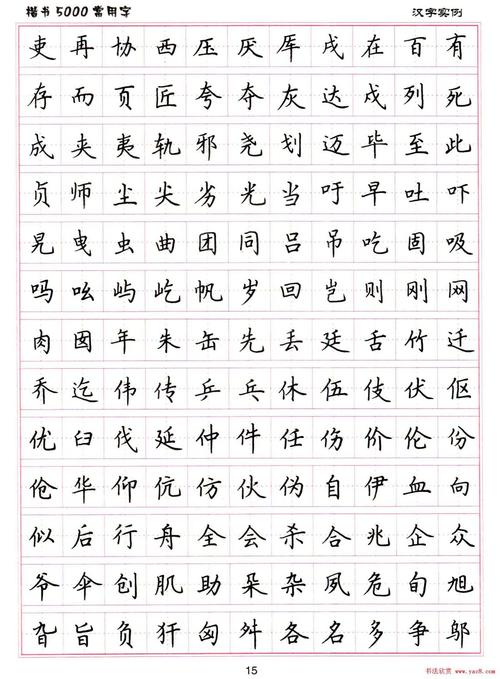 楷书5000常用字 汉字实例
吏再协西压厌厍戌在百有
存而页匠夸夺灰达戍列死
成夹夷轨邪尧划迈毕至此
贞师尘尖劣光当吁早吐吓
晃曳虫曲团同吕吊吃固吸
吗吆屿屹帆岁回岂则刚网
肉囡年朱缶先丢廷舌竹迁
乔迄伟传乒乓休伍伎伏伛
优臼伐延仲件任伤价伦份
伧华仰伉仿伙伪自伊血向
似后行舟全会杀合兆企众
爷伞创肌助朵杂夙危旬旭
旮旨负犴匈舛各名多争邬
15
书法欣赏 www.yac8.com